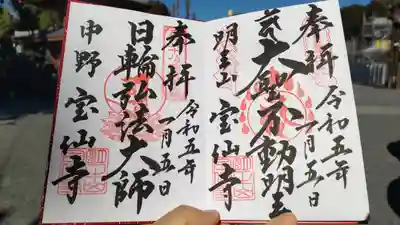 奉拝
令和五年
一月五日
大聖不動明王
明王山
宝仙寺
奉拝
令和五年
一月五日
日輪弘法大師
中野
宝仙寺